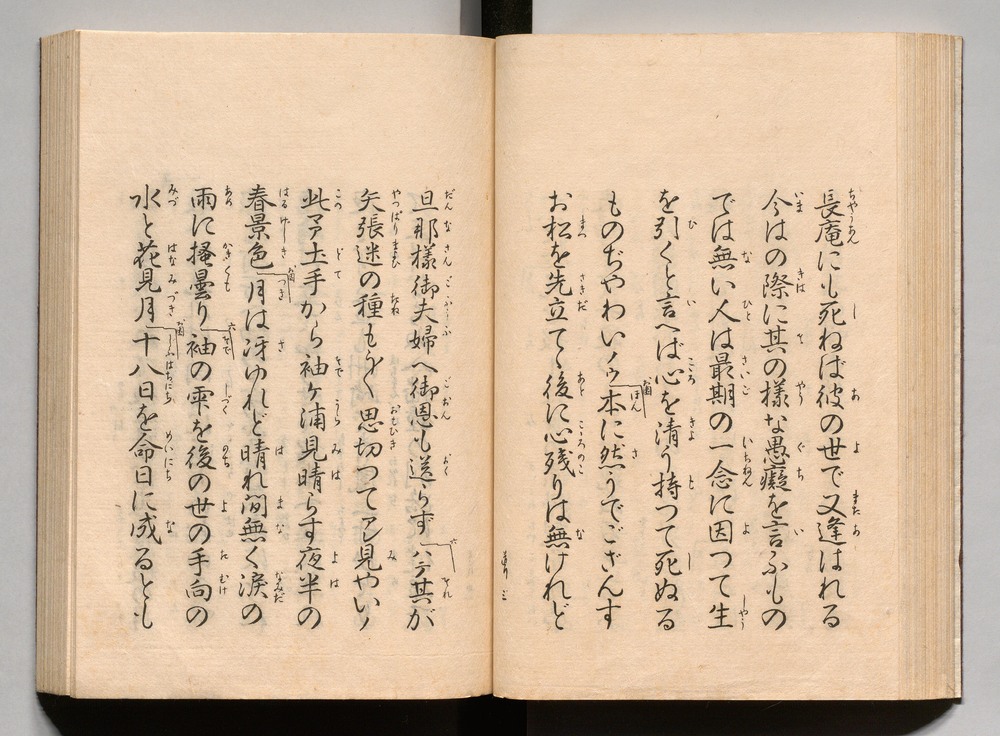 長庵にも死ねば彼の世で又逢はれる
今はの際に其の様な愚癡を言ふもの
では無い人は最期の一念に因つて生
を引くと言へば心を清う持つて死ぬる
ものぢやわいノウ本に然うでござんす
お松を先立てゝ後に心残りは無けれど
旦那様御夫婦へ御恩も送らずハテ其が
矢張迷の種もう思切つてアレ見やいノ
此マア土手から袖ヶ浦見晴らす夜半の
春景色月は冴ゆれど晴れ間無く涙の
雨に掻曇り袖の雫を後の世の手向の
水と花見月十八日を命日に成るとも